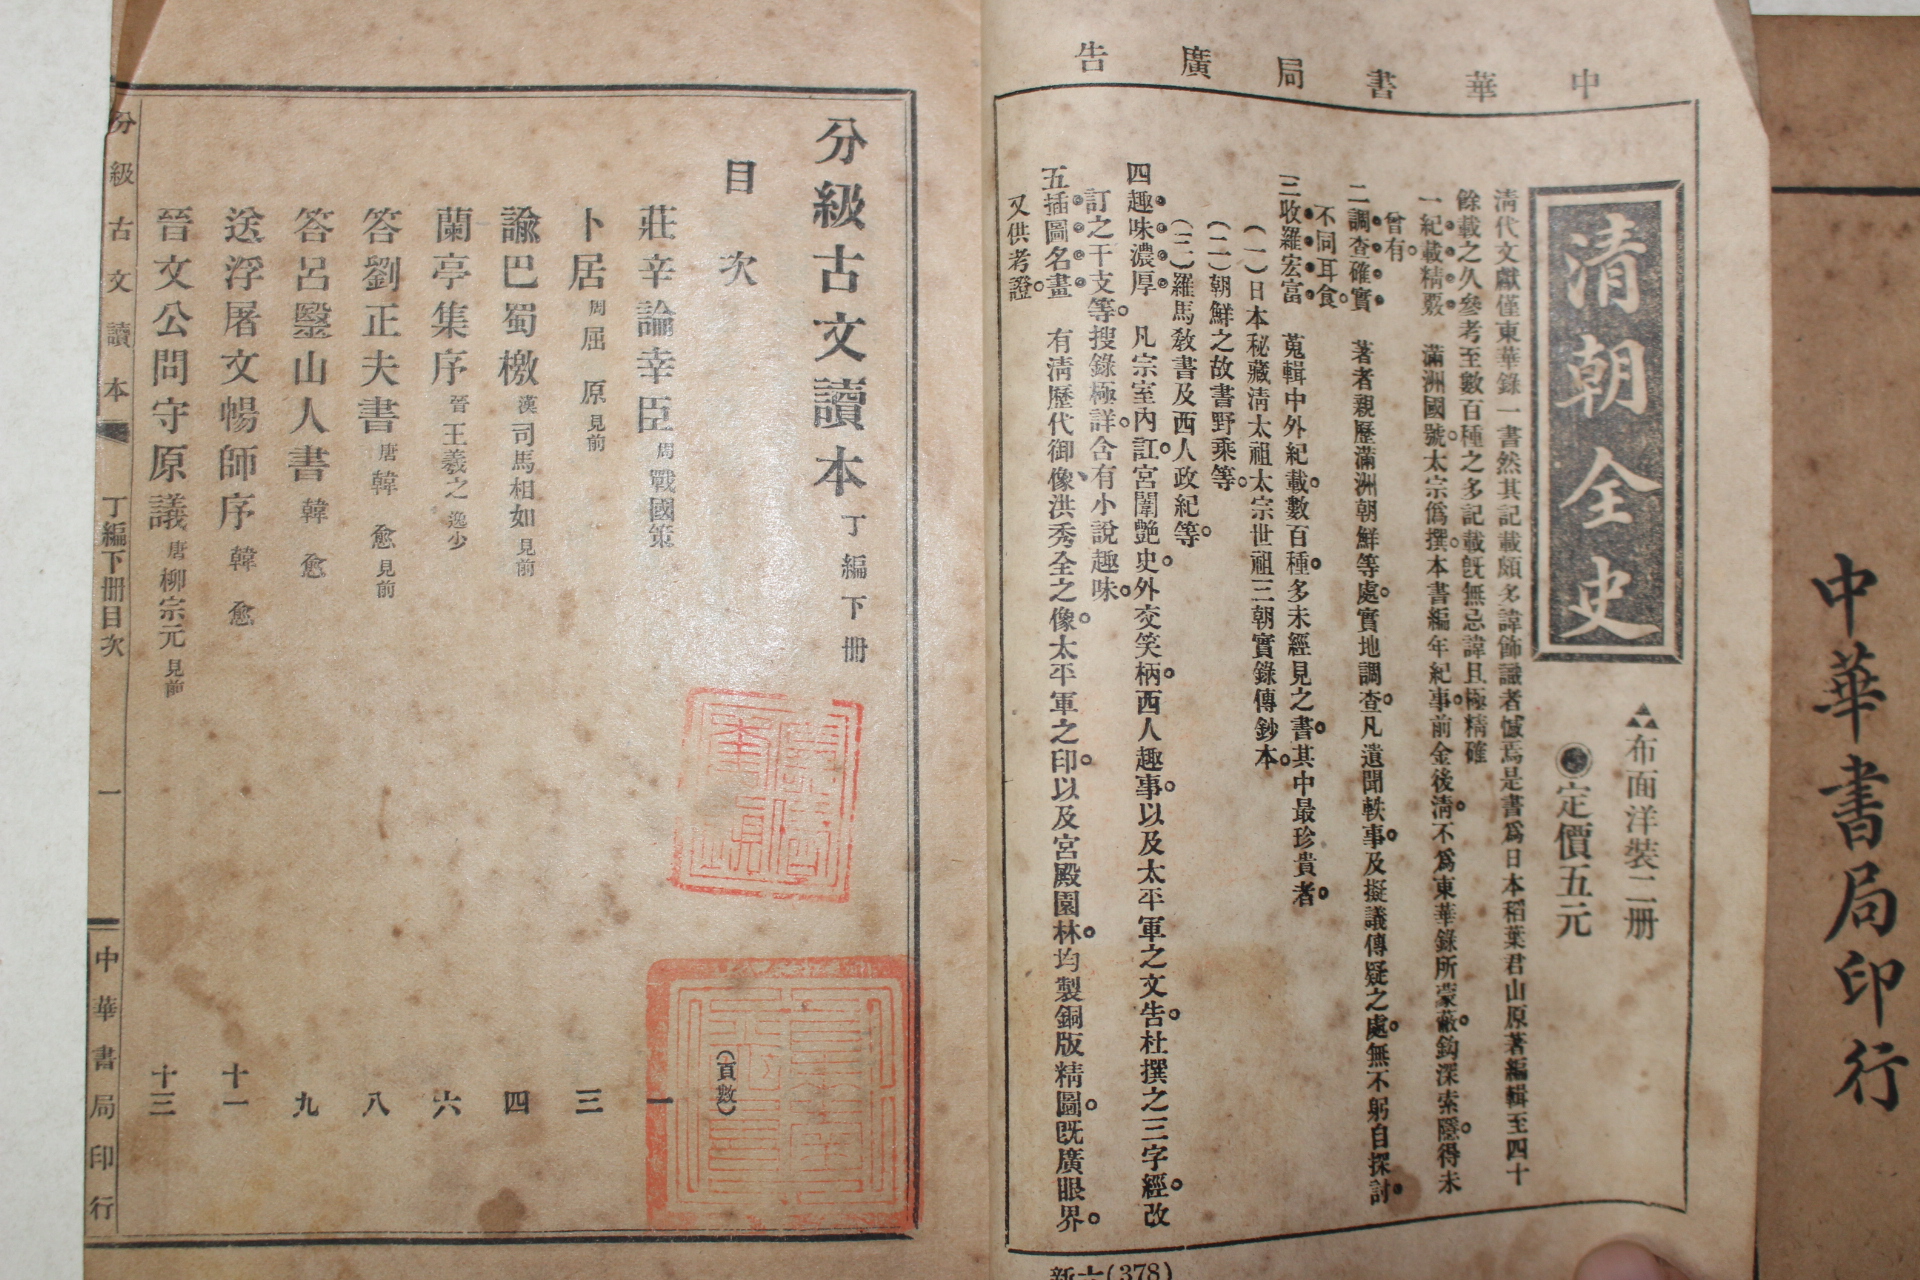 中華書局印行
中華書局廣告
清朝全史
▲布面洋裝二册
●定價五元
清代文獻僅東華錄一書然其記載頗多諱飾識者憾焉是書爲日本稻葉君山原著編輯至四十
餘載之久參考至數百種之多記載旣無忌諱且極精確
一紀載精覈　滿洲國號。太宗僞撰。本書編年紀事。前金後淸。不爲東華錄所蒙蔽。鈎深索隱。得未
曾有。
二調查確實　著者親歷滿洲朝鮮等處。實地調查。凡遺聞軼事。及擬議傳疑之處。無不躬自探討。
不同耳食。
三收羅宏富　蒐輯中外紀載。數百種。多未經見之書。其中最珍貴者。
（一）日本秘藏淸太祖太宗世祖三朝實錄傳鈔本。
（二）朝鮮之故書野乘等。
（三）羅馬敎書及西人政紀等。
四趣味濃厚　凡宗室內訌。宮闈艷史。外交笑柄。西人趣事。以及太平軍之文告。杜撰之三字經。改
訂之干支等。搜錄極詳。含有小說趣味。
五插圖名畫　有淸歷代御像、洪秀全之像。太平軍之印。以及宮殿園林。均製銅版精圖。旣廣眼界。
又供考證。
新六(378)
分級古文讀本 丁編下册
目次
（頁數）
莊辛論幸臣 周 戰國策 一
卜居 周 屈原 見前 三
諭巴蜀檄 漢 司馬相如 見前 四
蘭亭集序 晉 王羲之 逸少 六
答劉正夫書 唐 韓愈 見前 八
答呂毉山人書 韓愈 九
送浮屠文暢師序 韓愈 十一
晉文公問守原議 唐 柳宗元 見前 十三
分級古文讀本 丁編下册目次 一 中華書局印行